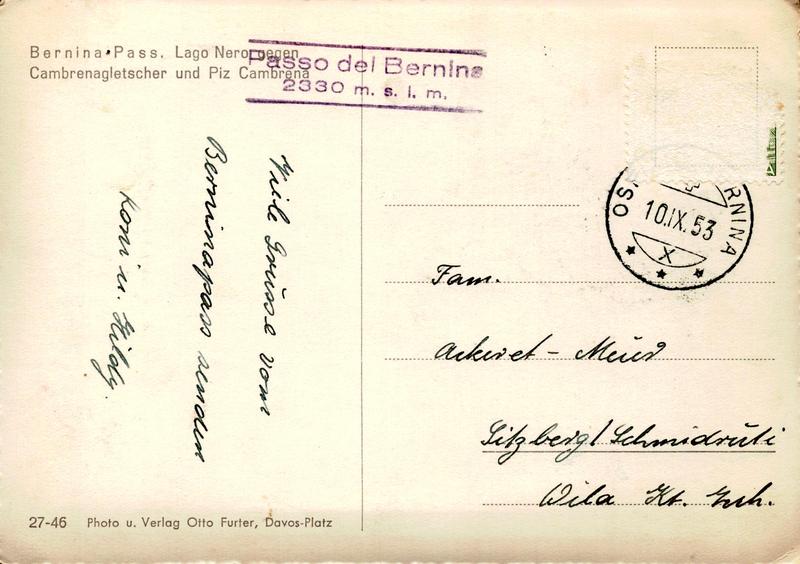 Bernina-Pass. Lago Nero gegen
Cambrenagletscher und Piz Cambrena
Passo del Bernina
2330 m. s. l. m.
10.IX.53
X
Viele Grüsse vom
Berninapass senden
Koni u. Hildy.
Fam.
Ackeret - Meier
Sitzberg/Schmidrüti
Wila Kt. Zch.
27-46 Photo u. Verlag Otto Furter, Davos-Platz